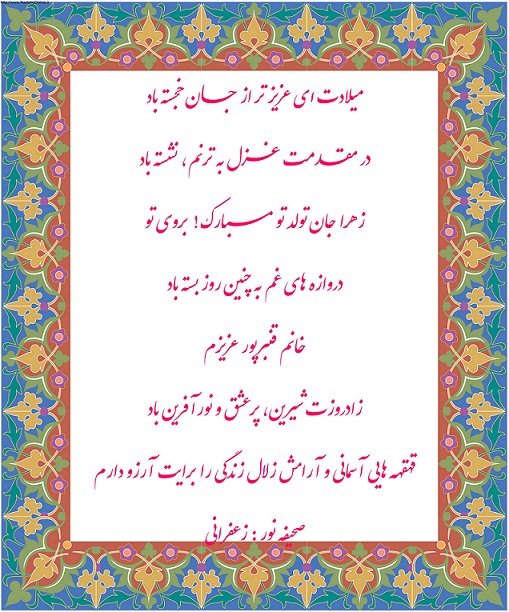 میلادت ای عزیز تر از جان خجسته باد
در مقدمت غزل به ترنم ، نشسته باد
زهرا جان تولد تو مبارک ! بروی تو
دروازه های غم به چنین روز بسته باد
خانم قنبرپور عزیزم
زادروزت شیرین، پرعشق و نور آفرین باد
قهقهه هایی آسمانی و آرامش زلال زندگی را برایت آرزو دارم
صحیفه نور : زعفرانی